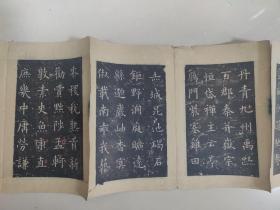 丹青九州禹跡
百郡秦并嶽宗
恒岱禪主云亭
鴈門紫塞雞田
赤城昆池碣石
鉅野洞庭曠遠
緜邈巖岫杳冥
俶載南畝我藝
黍稷稅熟貢新
勸賞黜陟孟軻
敦素史魚秉直
庶幾中庸勞謙